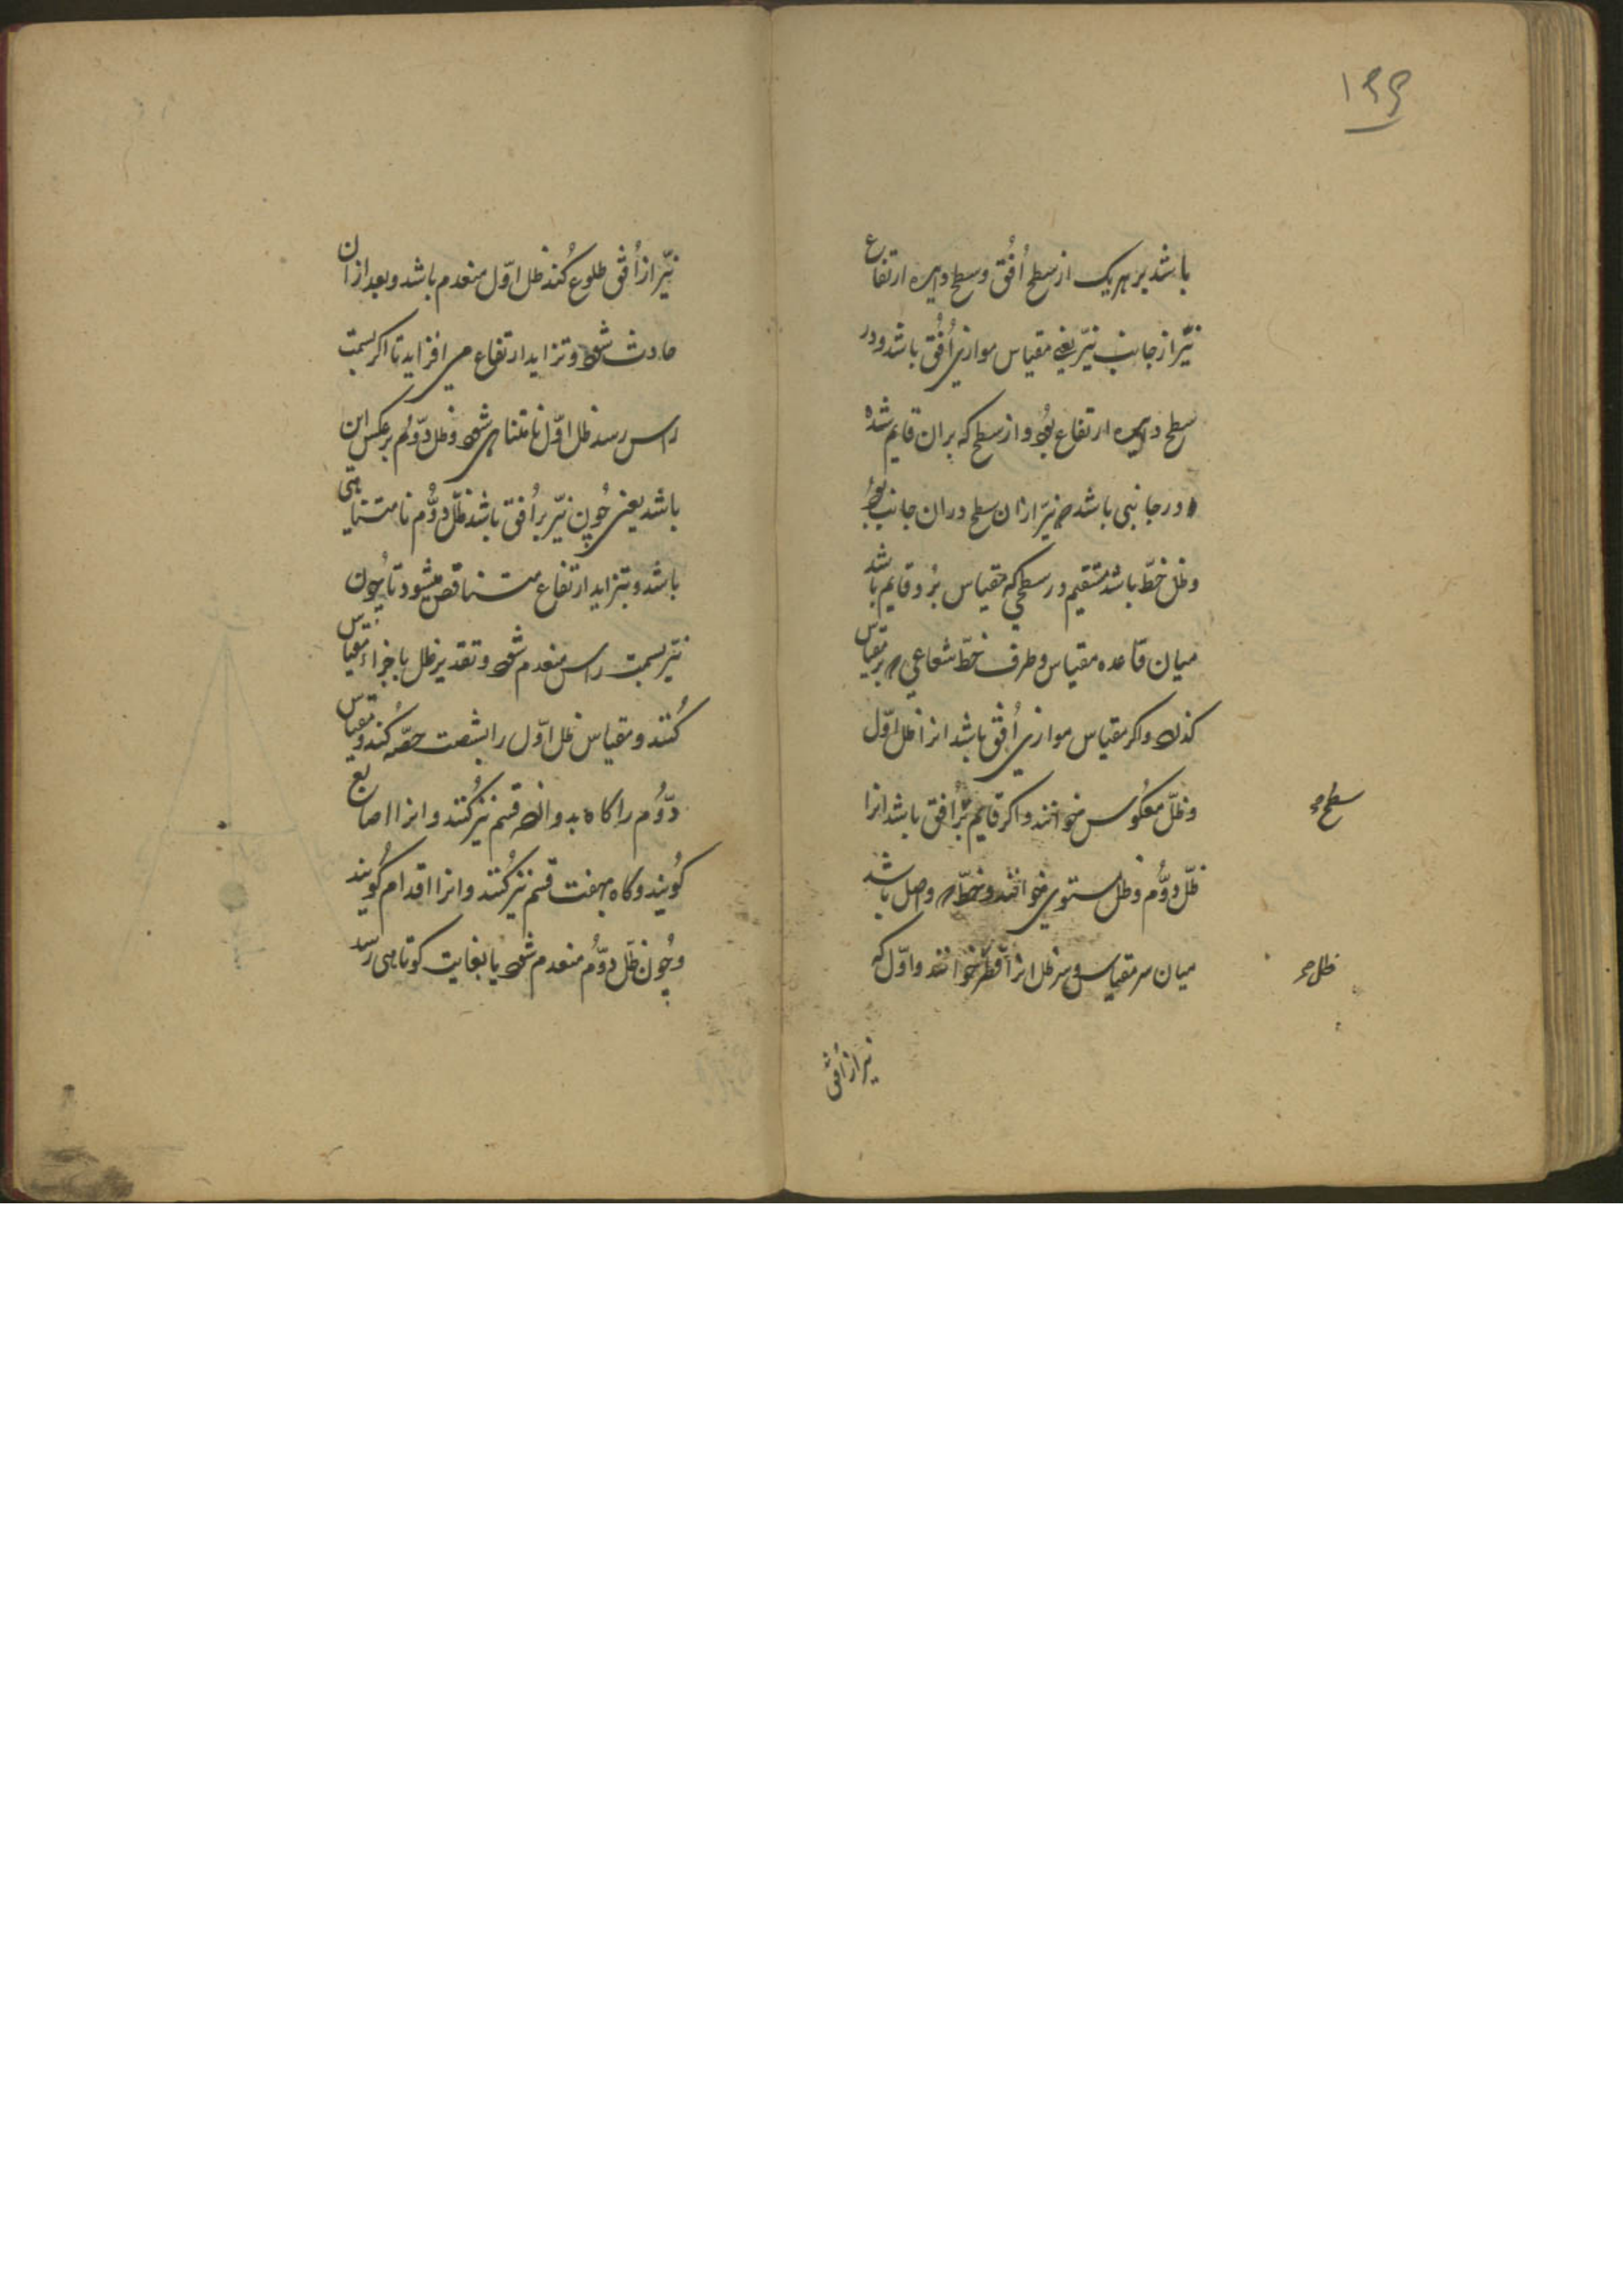 ۱۳۶
باشد بر هریک از سطح اُفُق و سطح دایره ارتفاع
نیّر از جانب نیّر یعنی مقیاس موازی اُفُق باشد و در
سطح دایره ارتفاع بوُد و از سطح که بران قایم شده
در جانبی باشد که نیّر ازان سطح دران جانب بوُد
و ظل خطّ باشد مستقیم در سطحی که مقیاس برُو قایم باشد
میان قاعده مقیاس و طرف خطّ شعاعی بر سر مقیاس
کذرد و اکر مقیاس موازی اُفُق باشد انرا ظل اوّل
و ظلّ معکوُس خوانند و اکر قایم برُ اُفق باشد انرا
سطح
ظلّ دوُّم و ظل مستوی خوانند و خطّ که واصل باشد
میان سر مقیاس و سر ظل انرا قطر خوانند و اوّل که
ظل
نیر از اُفق
نیّر از اُفُق طلوع کُند ظل اوّل منعدم باشد و بعد ازان
حادث شود و تزاید ارتفاع می افزاید تا اکر بسمت
راس رسد ظل اوّل نامتناهی شود و ظل دوُّم بر عکس این
باشد یعنی چوُن نیّر بر اُفق باشد ظلّ دوُّم نامتناهی
باشد و بتزاید ارتفاع متناقص میشود تا چوُن
نیّر بسمت راس منعدم شود و تقدیر ظل باجزاء مقیاس
کُنند و مقیاس ظل اوّل را بشصت حصّه کُنند و مقیاس
دوُّم را کاه بدوازده قسم نیز کُنند و انرا اصابع
کوُیند و کاه بهفت قسم نیز کُنند و انرا اقدام کوُیند
و چوُن ظلّ دوُّم منعدم شود یا بغایت کوتاهی رسد